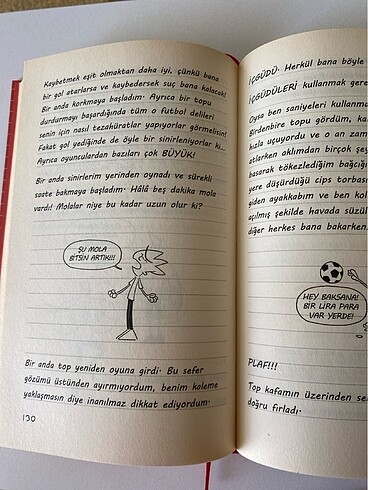 Kaybetmek eşit olmaktan daha iyi, çünkü bana
bir gol atarlarsa ve kaybedersek suç bana kalacak!
Bir anda korkmaya başladım. Ayrıca bir topu
durdurmayı başardığında tüm o futbol delileri
senin için nasıl tezahüratlar yapıyorlar görmelisin!
Fakat gol yediğinde de öyle bir sinirleniyorlar ki...
Ayrıca oyunculardan bazıları çok BÜYÜK!
Bir anda sinirlerim yerinden oynadı ve sürekli
saate bakmaya başladım. Hâlâ beş dakika mola
vardı! Molalar niye bu kadar uzun olur ki?
ŞU MOLA
BİTSİN ARTIK!!!
Bir anda top yeniden oyuna girdi. Bu sefer
gözümü üstünden ayırmıyordum, benim kaleme
yaklaşmasın diye inanılmaz dikkat ediyordum.
130
İÇGÜDÜ. Herkül bana böyle
İÇGÜDÜLERİ kullanmak gere
Oysa ben saniyeleri kullanma
Birdenbire topu gördüm, ka
hızla uçuyordu ve o an zam
atlarken aklımdan birçok şey
basarak tökezlediğim bağcığı
yere düşürdüğü cips torbas
giden ayakkabım ve ben kol
açılmış şekilde havada süzül
diğer herkes bana bakarken.
HEY BAKSANA!
BİR LİRA PARA
VAR YERDE!
PLAF!!!
Top kafamın üzerinden se
doğru fırladı.